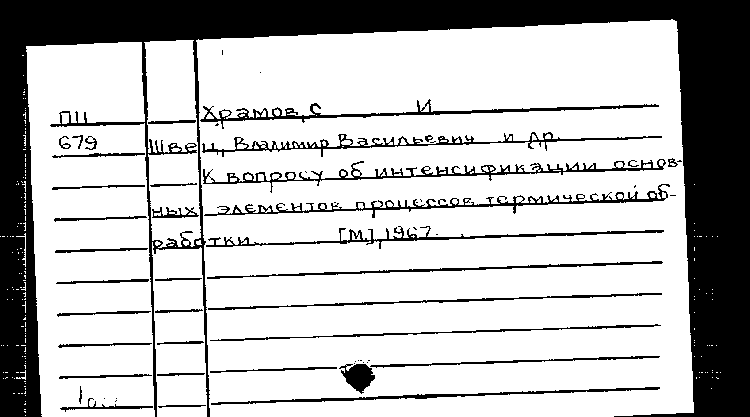 ПЦ Храмов, С И
679 Швец, Владимир Васильевич и др.
К вопросу об интенсификации основ-
ных элементов процессов термической об-
работки. [М], 1967.